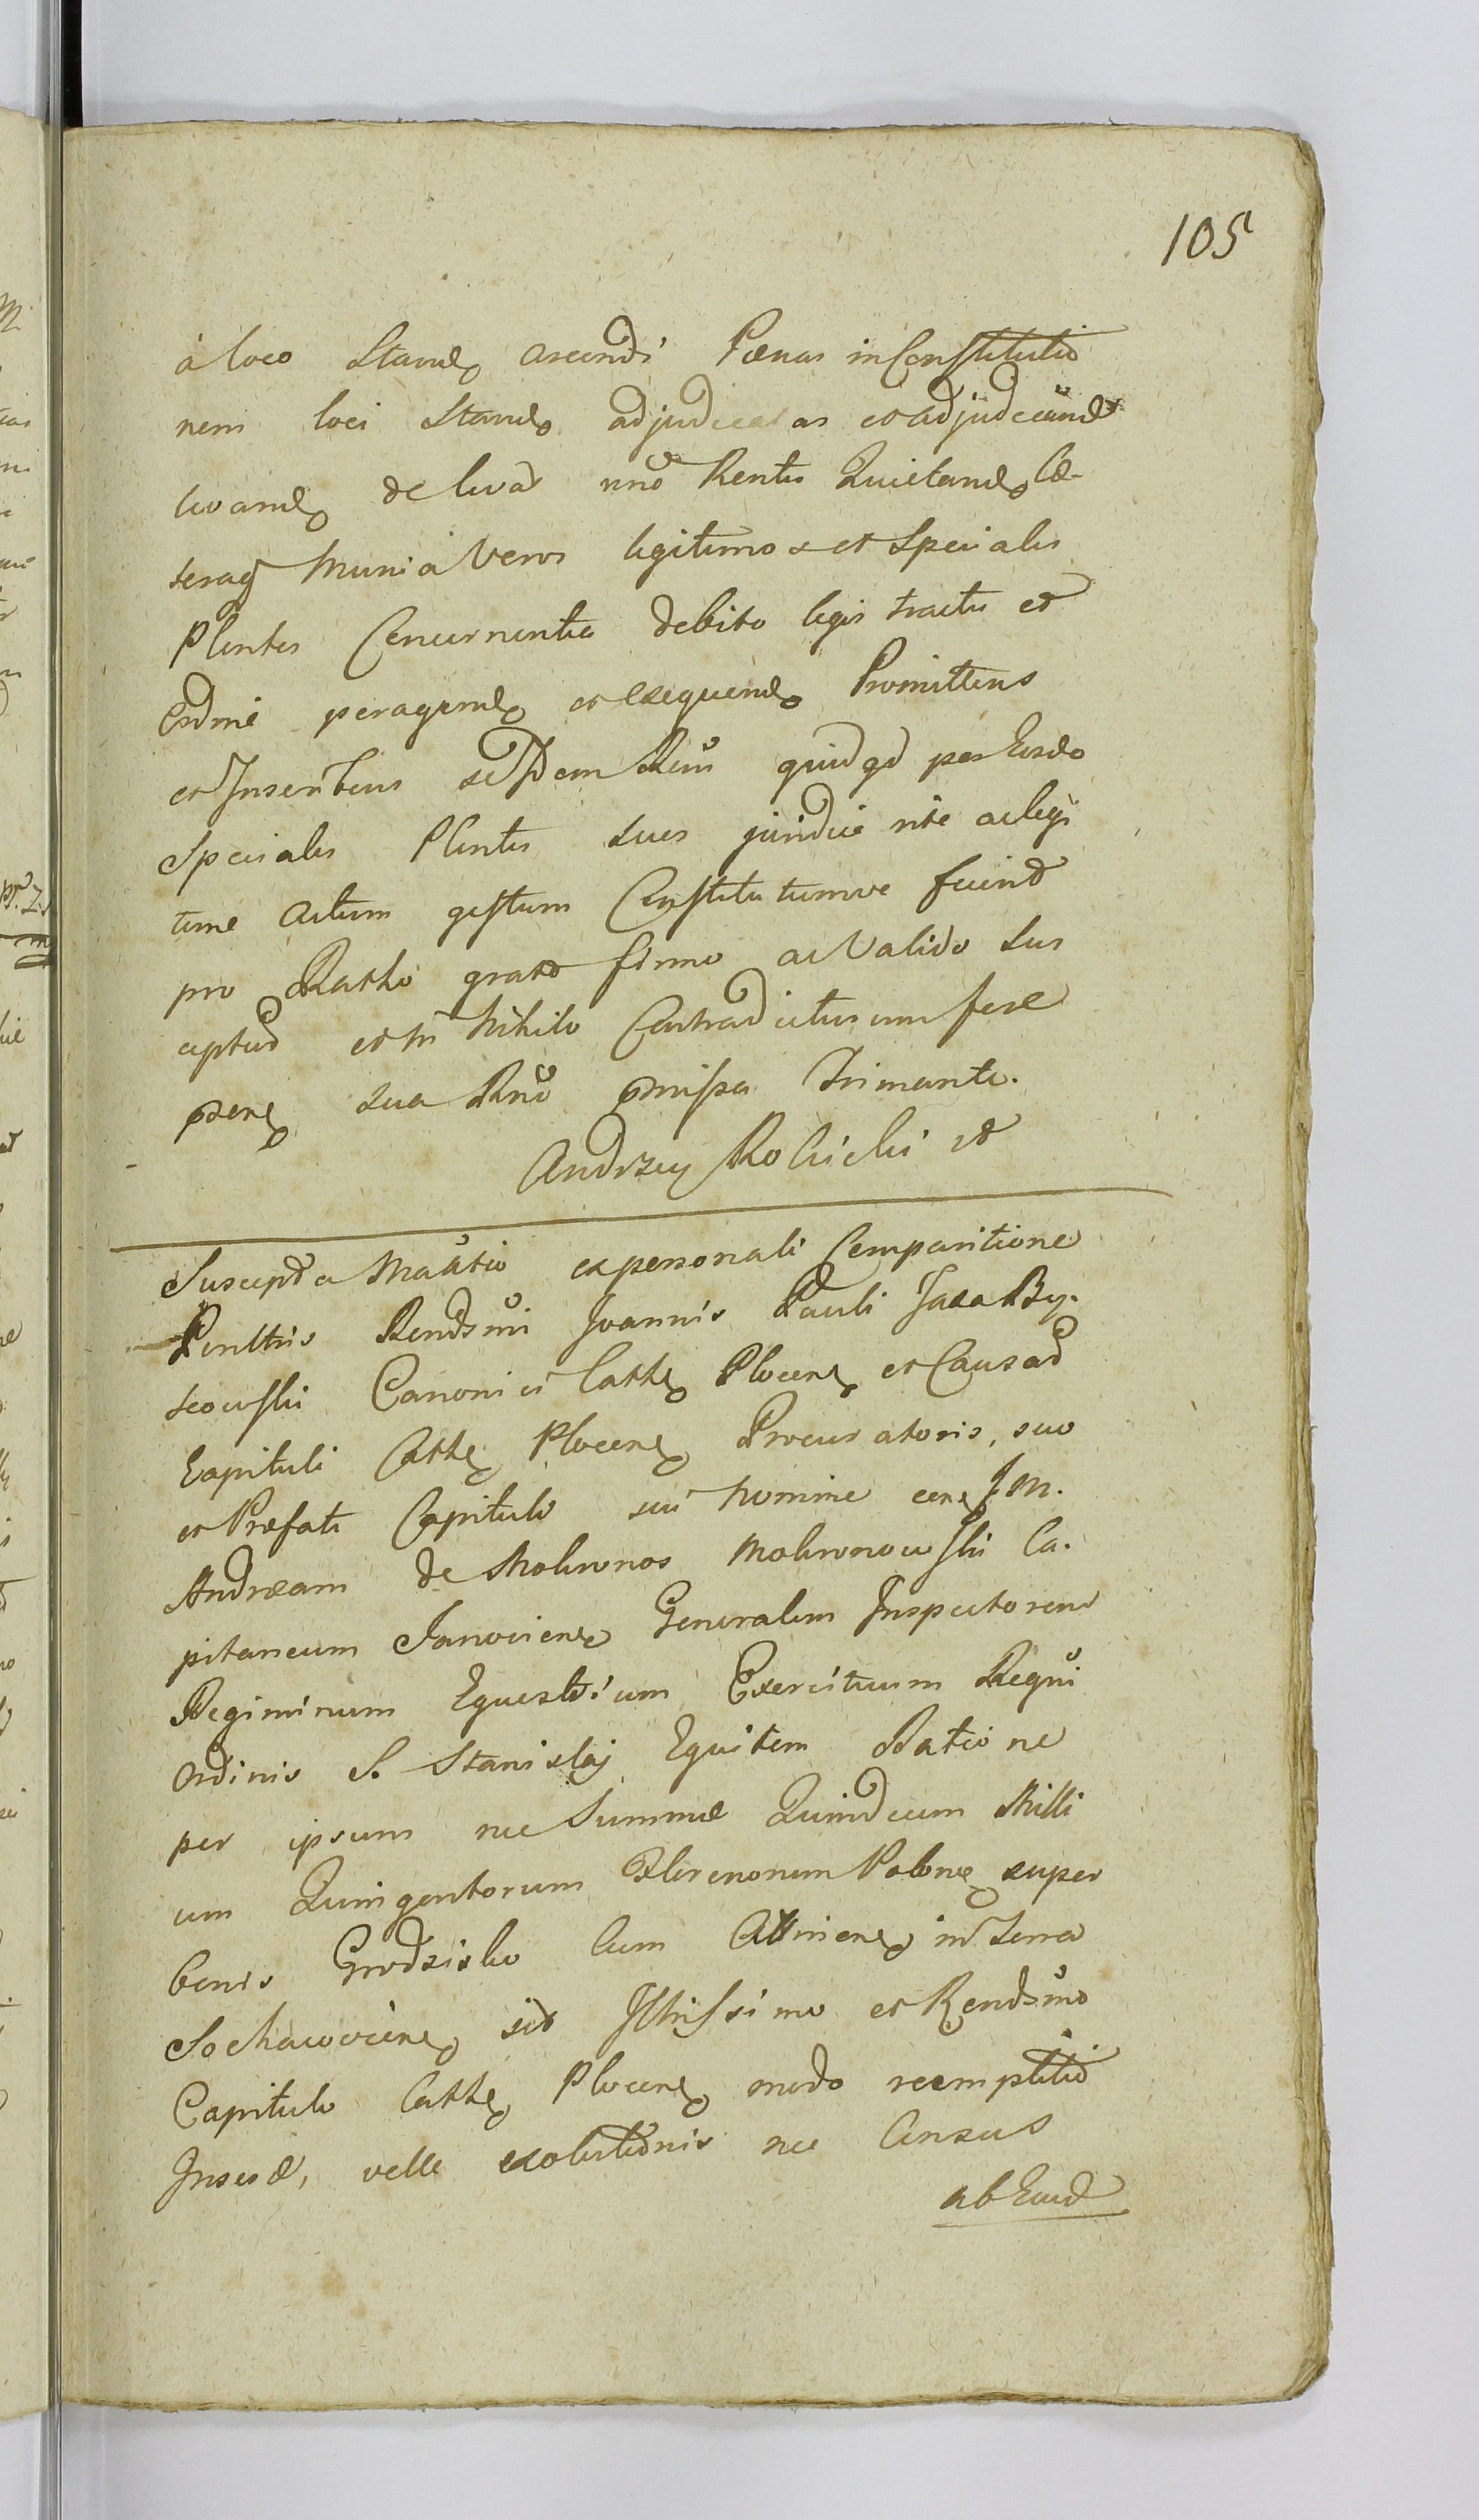 105
à loco Standꝫ arcendi Pœnas in Constitutio
nem loci Standꝫ adjudicatas et adjudicandꝫ
levandꝫ de levat nno Rentis Quietandꝫ Cæ-
teraqꝫ Munia Veros legitimos et Speciales
Plentes Concernentia debito legis tractu et
Ordine peragendꝫ et exequendꝫ Promittens
et Inscribens se Idem Rcns quidqd per Eosdo
Speciales Plentes suos juridice rite ac legi
time actum gestum Constitutumve fuerit
pro Ratho grato firmo ac Valido sus
cepturꝫ et in Nihilo Contradicturum fore
pærꝫ sua Rno præmissa Firmante.
Andrzey Rolicki
Suscepta Maütio ex personali Comparitione
Perilltris Rendsmi Joannis Pauli Jaxa By-
szewski Canonici Cathꝫ Plocenꝫ et Causarꝫ
Capituli Cathꝫ Plocenꝫ Procuratoris, suo
et Præfati Capituli sui nomine cenꝫ JM.
Andream de Mokronos Mokronowski Ca-
pitaneum Janovienꝫ Generalem Inspectorem
Regiminum Equestrium Exercituum Regni
Ordinis S. Stanislaj Equitem Ratione
per ipsum nec Summæ Quindecim Milli
um Quingentorum Florenorum Polonꝫ super
bonis Grodzisko Cum Attinenꝫ in Terra
Sochaczovienꝫ sit Illrissimo et Rendsmo
Capitulo Cathꝫ Plocenꝫ modo reemptitio
Inscrꝫ, velle exolutionis nec Census
ab Ead